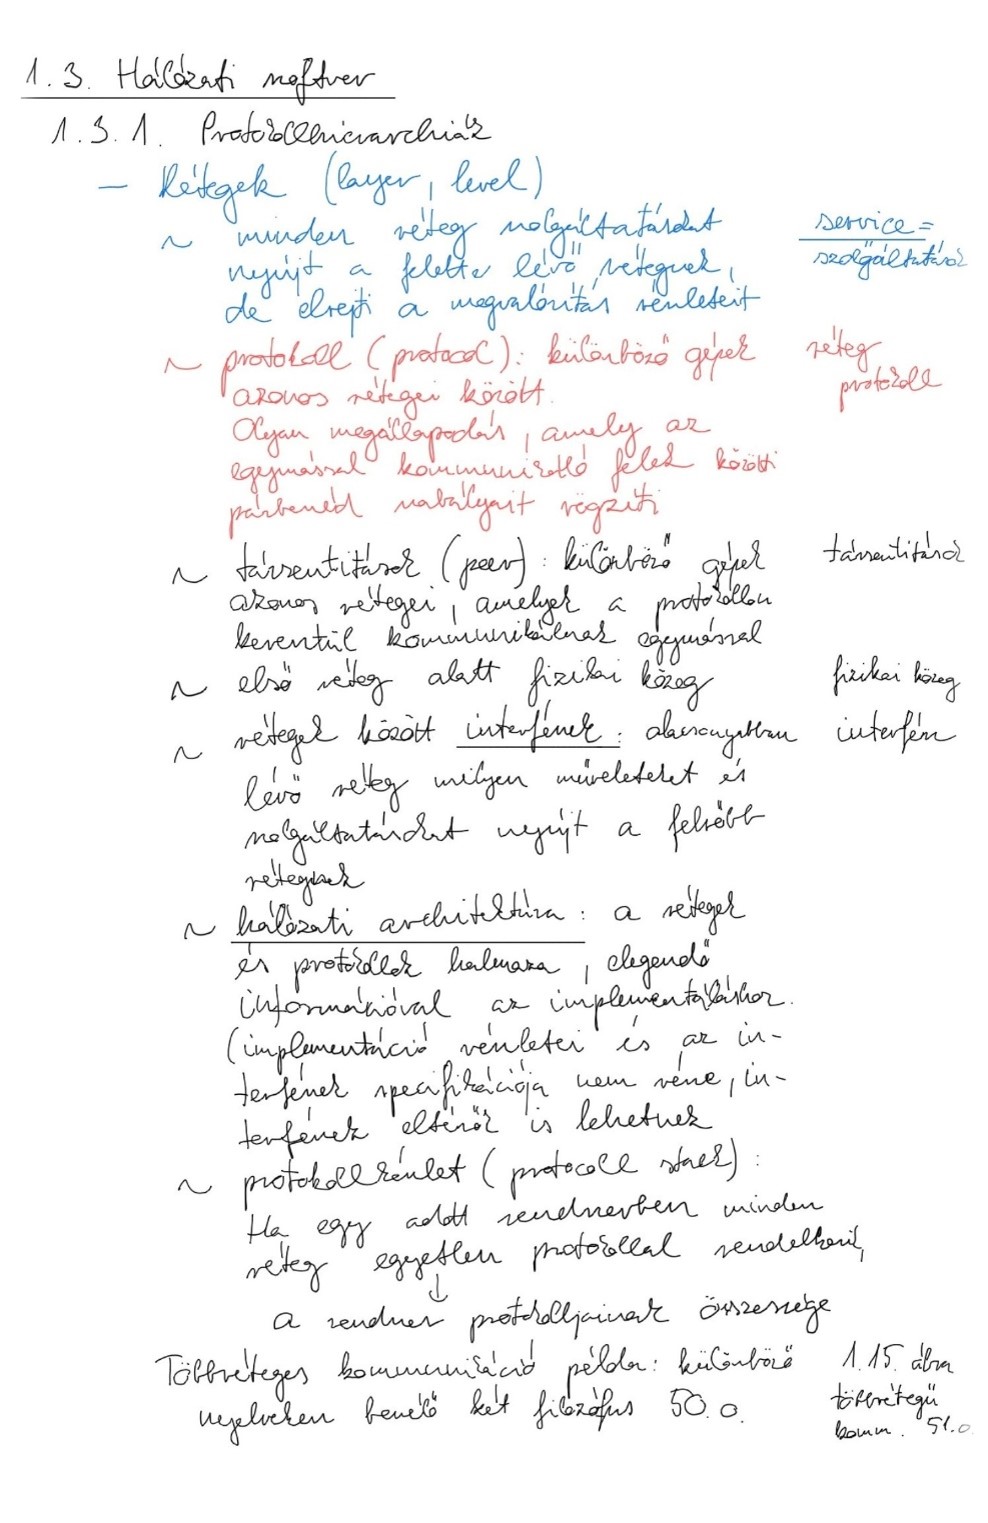 1.3. Hálózati szoftver
1.3.1. Protokollhierarchiák
– Rétegek (layer, level)
~ minden réteg szolgáltatásokat
service =
szolgáltatások
nyújt a felette lévő rétegnek,
de elrejti a megvalósítás részleteit
~ protokoll (protocol): különböző gépek
réteg
protokoll
azonos rétegei között.
Olyan megállapodás, amely az
egymással kommunikáló felek közötti
párbeszéd szabályait rögzíti
~ társentitások (peer): különböző gépek
társentitások
azonos rétegei, amelyek a protokollon
keresztül kommunikálnak egymással
~ első réteg alatt fizikai közeg
fizikai közeg
~ rétegek között interfészek: alacsonyabban
interfész
lévő réteg milyen műveleteket és
szolgáltatásokat nyújt a felsőbb
rétegnek
~ hálózati architektúra: a rétegek
és protokollok halmaza, elegendő
információval az implementáláshoz.
(implementáció részletei és az in-
terfészek specifikációja nem része, in-
terfészek eltérők is lehetnek
~ protokollkészlet (protocoll stack):
Ha egy adott rendszerben minden
réteg egyetlen protokollal rendelkezik,
↓
a rendszer protokolljainak összessége
Többréteges kommunikáció példa: különböző
1.15. ábra
nyelveken beszélő két filozófus 50.o.
többrétegű
komm. 51.o.